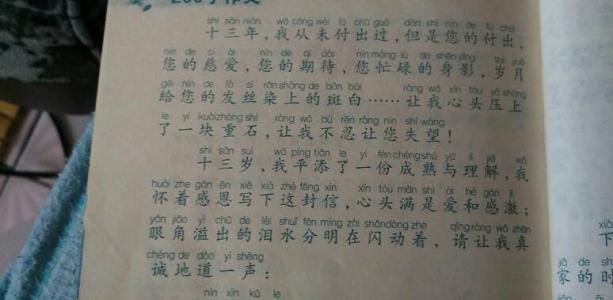 shí sān nián wǒ cóng wèi fù chū guò dàn shì nín de fù chū
十三年，我从未付出过，但是您的付出，
nín de cí ài nín de qī dài nín máng lù de shēn yǐng suì yuè
您的慈爱，您的期待，您忙碌的身影，岁月
gěi nín de fà sī rǎn shàng de bān bái ràng wǒ xīn tóu yā shàng
给您的发丝染上的斑白……让我心头压上
le yí kuài zhòng shí ràng wǒ bù rěn ràng nín shī wàng
了一块重石，让我不忍让您失望！
shí sān suì wǒ píng tiān le yí fèn chéng shú yǔ lǐ jiě wǒ
十三岁，我平添了一份成熟与理解，我
huái zhe gǎn ēn xiě xià zhè fēng xìn xīn tóu mǎn shì ài hé gǎn jī
怀着感恩写下这封信，心头满是爱和感激；
yǎn jiǎo yì chū de lèi shuǐ fēn míng zài shǎn dòng zhe qǐng ràng wǒ zhēn
眼角溢出的泪水分明在闪动着，请让我真
chéng de dào yì shēng
诚地道一声：
nín xīn kǔ le
下
家的时